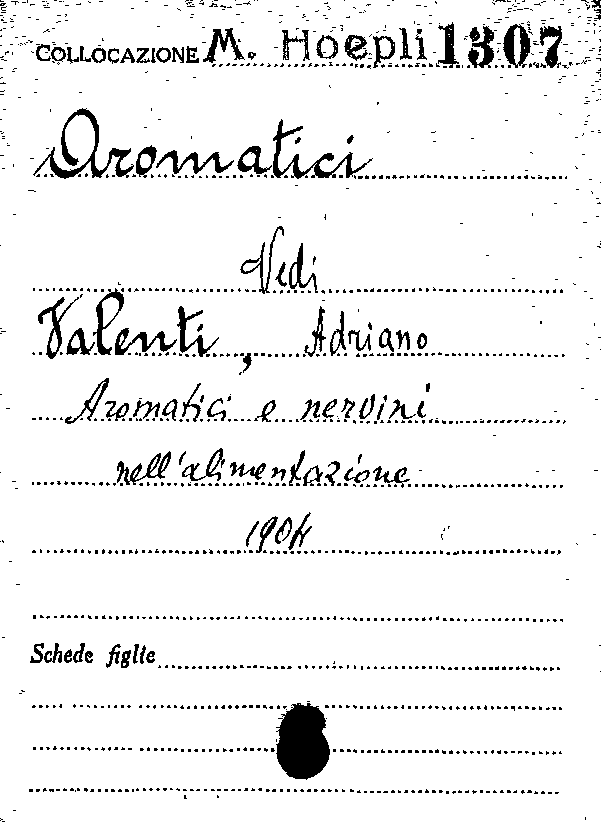 COLLOCAZIONE M. Hoepli 1307
Aromatici
Vedi
Valenti, Adriano
Aromatici e nervini
nell'alimentazione
1904
Schede figlie